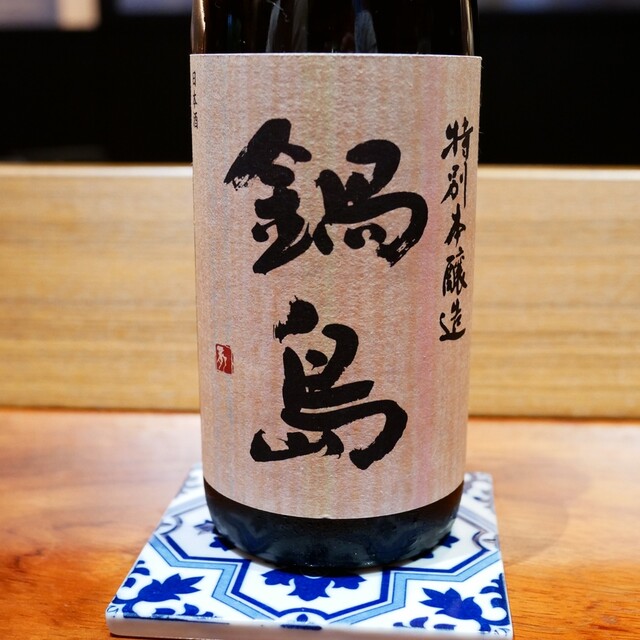 特別本醸造
鍋島
日本酒